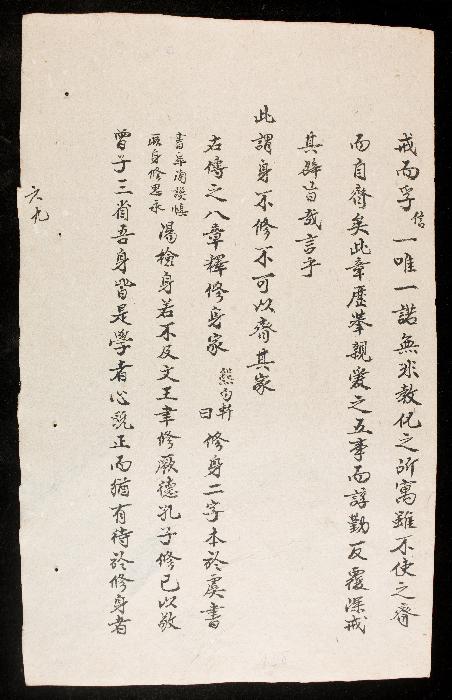 戒而孚信一唯一諾無非教化之所寓雖不使之齊
而自齊矣此章歷舉親愛之五事而諄勤反覆深戒
其辟旨哉言乎
此謂身不修不可以齊其家
右傳之八章釋修身家熊勿軒曰修身二字本於虞書
書皋陶謨慎厥身修思永湯檢身若不及文王聿修厥德孔子修已以敬
曾子三省吾身皆是學者心既正而猶有待於修身者
六九